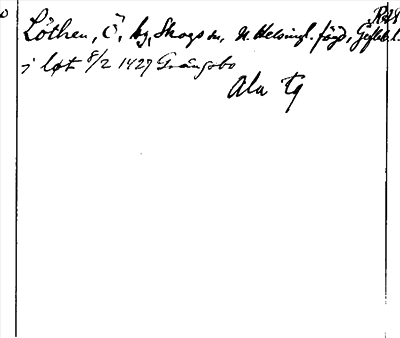 Löthen, Ö, by, Skogs sn, N. Helsingl. fögd, Gefleb. l.
i løt 8/2 1429 Grångsbo
Ala tg